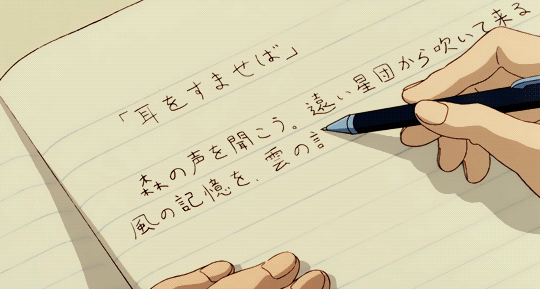 「耳をすませば」
森の声を聞こう。遠い星団から吹いて来る
風の記憶を、雲の言